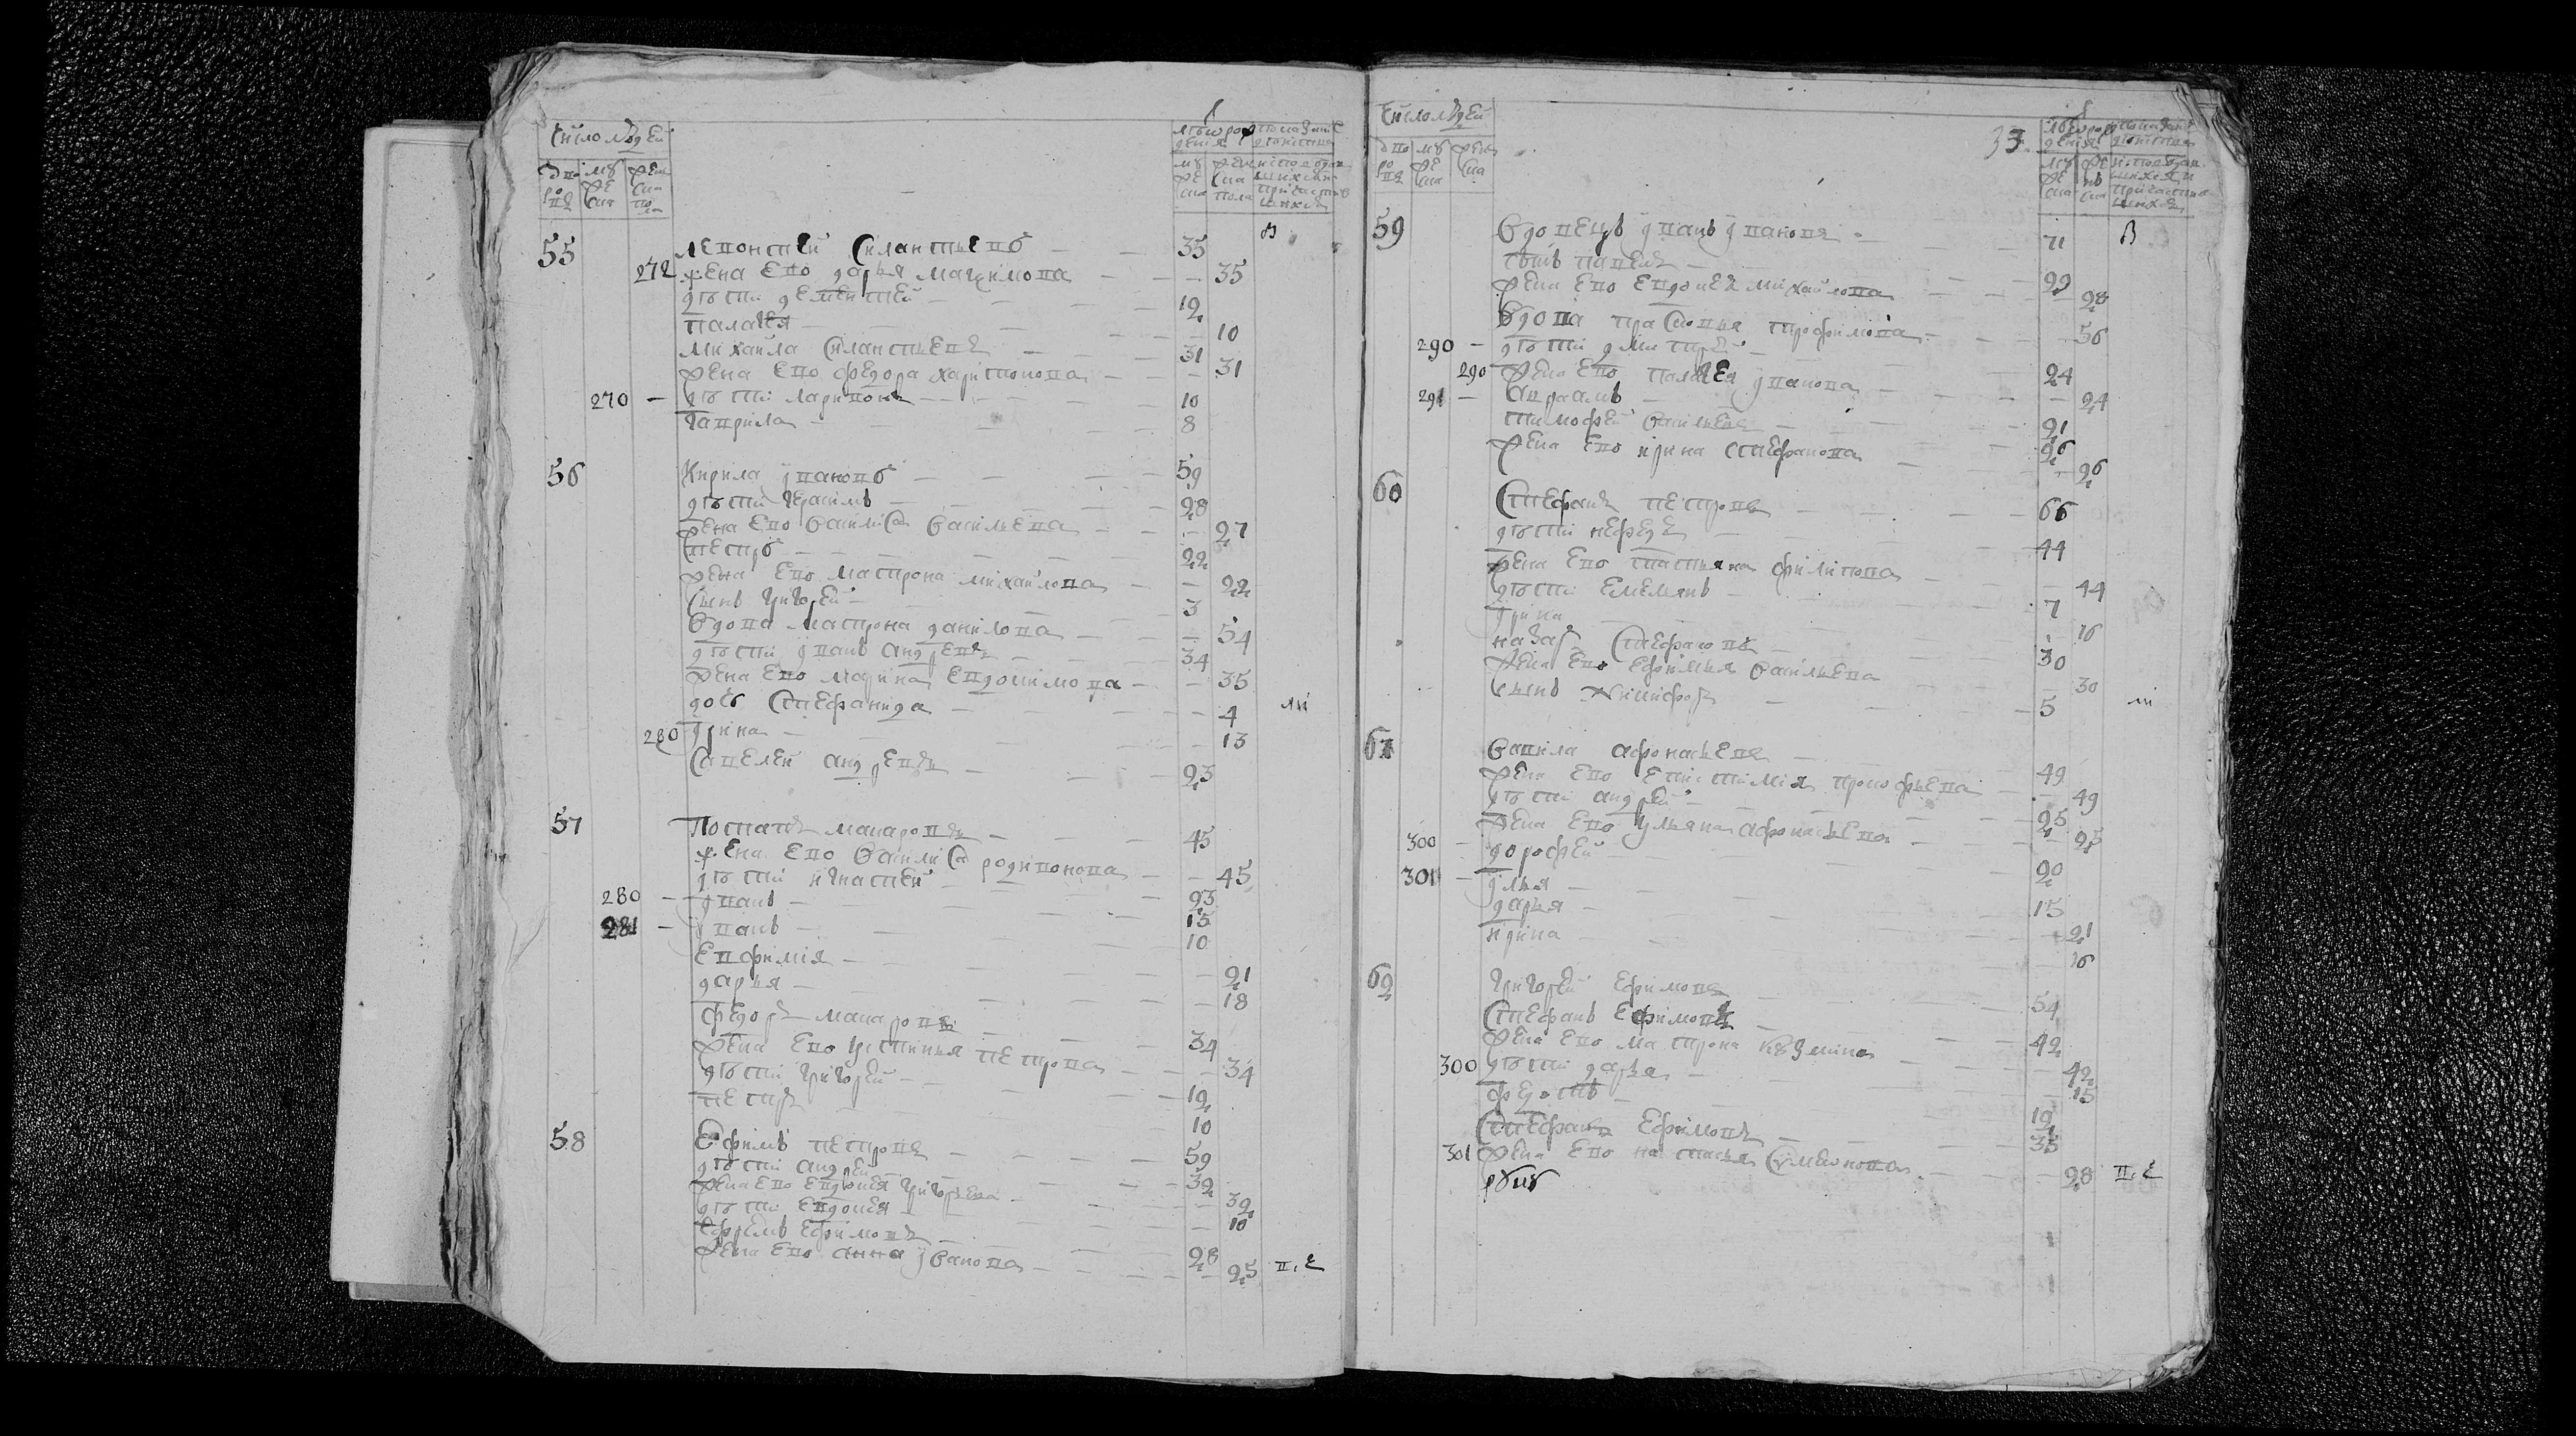 Число людей
дво
ров
му
же
ска
жен
ска
пола
лѣт от рож
дения
му
же
ска
жен
ска
пола
показание
действа
исповедав
шихся и
причастив
шихся
в
55
Леонтей Силантьевъ 35
272 жена ево дарья маѯимова 35
дѣти дементей 12
палагея 10
михайла Силантьевъ 31
жена ево федора харитонова 31
270 дѣти ларивонъ 10
гаврила 8
56 Кирила ивановъ 59
дѣти герасимъ 28
жена ево василиса васильева 27
петръ 22
жена ево матрона михайлова 22
сынъ григорей 3
вдова матрона данилова 54
дѣти иванъ андреевъ 34
жена ево марина евдокимова 35
дочь стефанида 4 ли
280 ирина 13
савелей андреевъ 23
57 Потапъ макаровъ 45
жена ево василиса родивонова 45
дѣти игнатей 23
280 иванъ 15
281 иванъ 10
евфимія 21
дарья 18
федоръ макаровъ 34
жена ево устинья петрова 34
дѣти григорей 12
петръ 10
58 Ефимъ петровъ 59
дѣти андрей 32
жена ево евдокея григорьева 32
дѣти евдокея 10
ефремъ ефимовъ 28
жена ево анна иванова 25 в.е
33
Число людей
дво
ров
му
же
ска
жен
ска
59 вдовецъ иванъ ивановъ 71 в
сынъ павелъ 29
жена ево евдокея михайлова 28
вдова прасковья трофимова 56
290 дѣти дмитрей 24
290 жена ево палагея иванова 24
291 авраамъ 21
тимофей васильевъ 26
жена ево ирина стефанова 26
60 Стефанъ петровъ 66
дѣти нефедъ 44
жена ево татьяна филипова 44
дѣти емельянъ 7
ирина 16
назаръ стефановъ 30
жена ево ефимья васильева 30
сынъ никифоръ 5 ли
61 гаврила афонасьева 49
жена ево епистимія прокофьева 49
дѣти андрей 25
жена ево ульяна афонасьева 25
300 дорофей 20
301 илья 15
дарья 21
ирина 16
62 григорей ефимовъ 54
Стефанъ ефимовъ 42
жена ево матрона кузмина 42
300 дѣти дарья 15
федотъ 12
Стефанъ ефимовъ 35
301 жена ево настасья симеонова 28 в.е